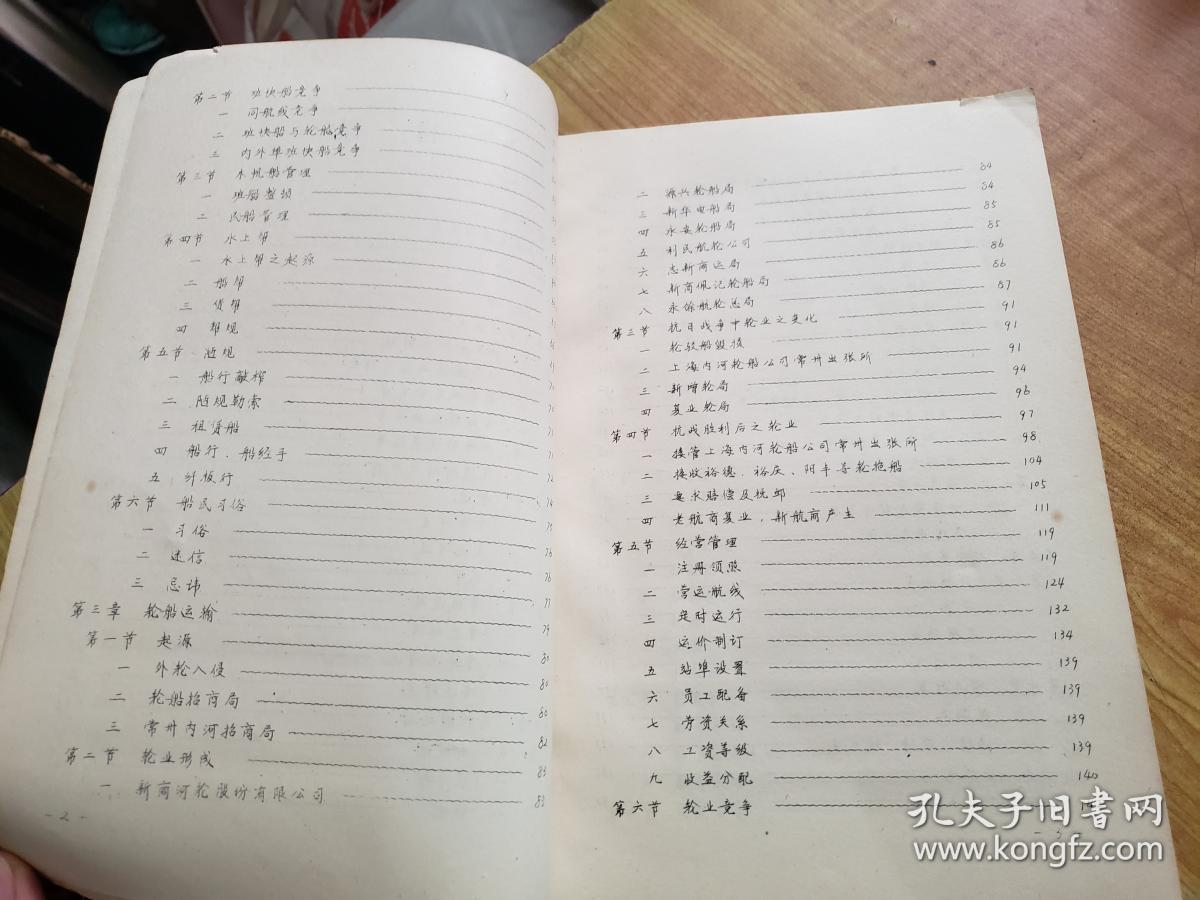 第二节 班快船竞争
一 同航线竞争
二 班快船与轮船竞争
三 内外埠班快船竞争
第三节 木帆船管理
一 班船整顿
二 民船管理
第四节 水上帮
一 水上帮之起源
二 船帮
三 货帮
四 帮规
第五节 陋规
一 船行敲榨
二 陋规勒索
三 租赁船
四 船行、船经手
五 纤板行
第六节 船民习俗 75
一 习俗 75
二 迷信 76
三 忌讳 77
第三章 轮船运输 79
第一节 起源 80
一 外轮入侵 80
二 轮船招商局 80
三 常州内河招商局 82
第二节 轮业形成 83
一 新商河轮股份有限公司 83
- 2 -
二 源兴轮船局 84
三 新华电船局 84
四 永安轮船局 85
五 利民航轮公司 85
六 志新商运局 86
七 新商佩记轮船局 86
八 永馀航轮总局 87
第三节 抗日战争中轮业之变化 91
一 轮驳船毁损 91
二 上海内河轮船公司常州出张所 91
三 新增轮局 94
四 复业轮局 96
第四节 抗战胜利后之轮业 97
一 接管上海内河轮船公司常州出张所 98
二 接收裕德、裕庆、阳丰等轮拖船 104
三 要求赔偿及抚邺 105
四 老航商复业，新航商产生 111
第五节 经营管理 119
一 注册领照 119
二 营运航线 124
三 定时运行 132
四 运价制订 134
五 站埠设置 139
六 员工配备 139
七 劳资关系 139
八 工资等级 139
九 收益分配 140
第六节 轮业竞争
- 3 -
孔夫子旧书网
www.kongfz.com